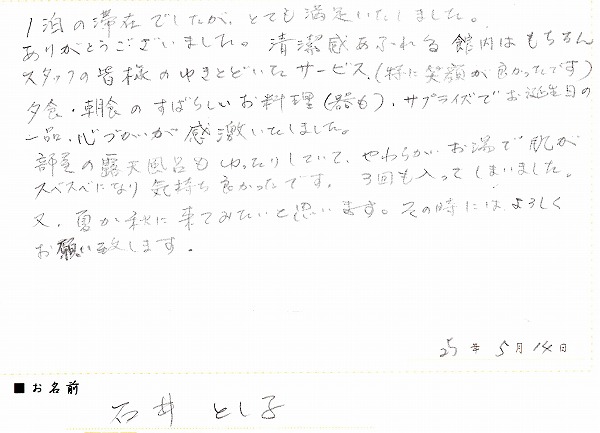 1泊の滞在でしたが、とても満足いたしました。
ありがとうございました。清潔感あふれる館内はもちろん
スタッフの皆様のゆきとどいたサービス、(特に笑顔が良かったです)
夕食・朝食のすばらしいお料理(器も)、サプライズでお誕生日の
一品、心づかいが感激いたしました。
部屋の露天風呂もゆったりしていて、やわらかいお湯で肌が
スベスベになり気持ち良かったです。3回も入ってしまいました。
又、夏か秋に来てみたいと思います。その時にはよろしく
お願い致します.
25年5月14日
■お名前
石井 とし子